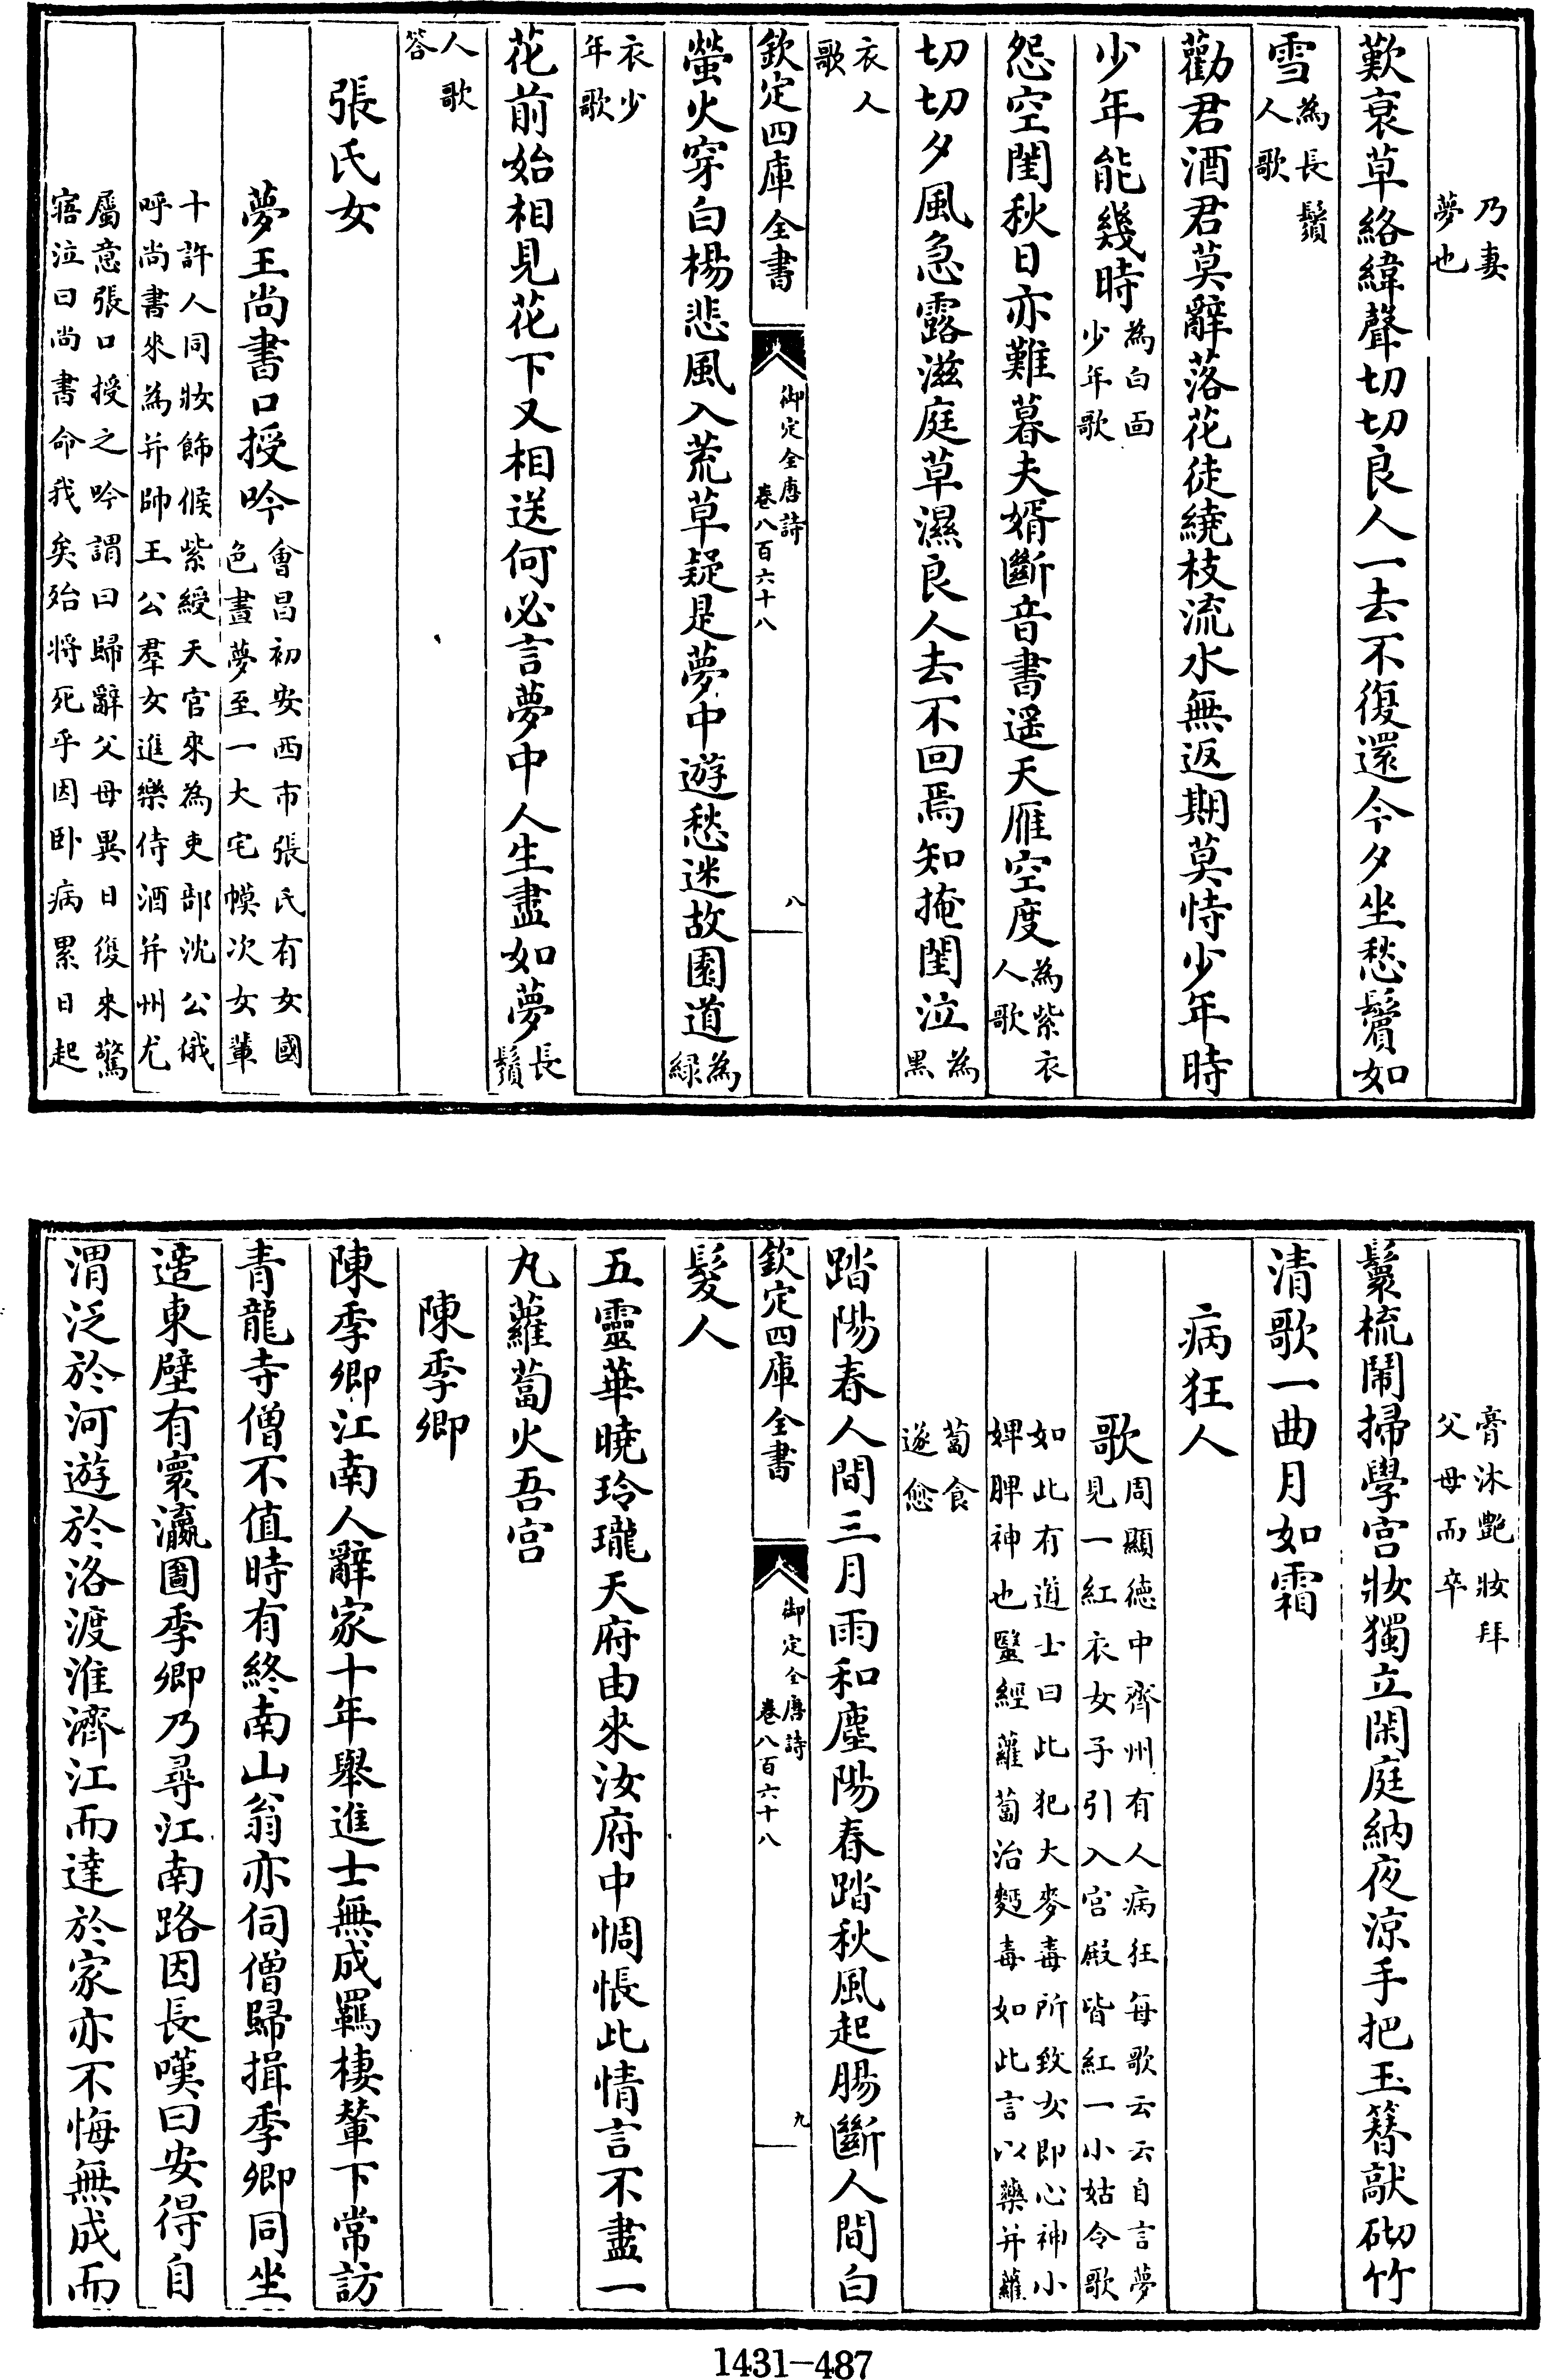 乃妻
夢也
歎衰草絡緯聲切切良人一去不復還今夕坐愁鬢如
雪為長鬚
人歌
勸君酒君莫辭落花徒繞枝流水無返期莫恃少年時
少年能幾時為白面
少年歌
怨空閨秋日亦難暮夫婿斷音書遥天雁空度為紫衣
人歌
切切夕風急露滋庭草濕良人去不回焉知掩閨泣為
黑
衣人
歌
欽定四庫全書
御定全唐詩
卷八百六十八
八
螢火穿白楊悲風入荒草疑是夢中遊愁迷故園道為
緑
衣少
年歌
花前始相見花下又相送何必言夢中人生盡如夢長
鬚
人歌
答
張氏女
夢王尚書口授吟會昌初安西市張氏有女國
色晝夢至一大宅幙次女輩
十許人同妝飾候紫綬天官來為吏部沈公俄
呼尚書來為并帥王公羣女進樂侍酒并州尤
屬意張口授之吟謂曰歸辭父母異日復來驚
寤泣曰尚書命我矣殆將死乎因卧病累日起
膏沐艶妝拜
父母而卒
鬟梳鬧掃學宫妝獨立閑庭納夜涼手把玉簪敲砌竹
清歌一曲月如霜
病狂人
歌周顯徳中齊州有人病狂每歌云云自言夢
見一紅衣女子引入宫殿皆紅一小姑令歌
如此有道士曰此犯大麥毒所致女即心神小
婢脾神也醫經蘿蔔治麪毒如此言以藥并蘿
蔔食
遂愈
踏陽春人間三月雨和塵陽春踏秋風起腸斷人間白
髪人
五靈華曉玲瓏天府由來汝府中惆悵此情言不盡一
丸蘿蔔火吾宫
陳季卿
陳季卿江南人辭家十年舉進士無成羈棲輦下常訪
青龍寺僧不值時有終南山翁亦伺僧歸揖季卿同坐
欽定四庫全書
御定全唐詩
卷八百六十八
九
適東壁有寰瀛圖季卿乃尋江南路因長嘆曰安得自
渭泛於河遊於洛渡淮濟江而達於家亦不悔無成而
1431-487